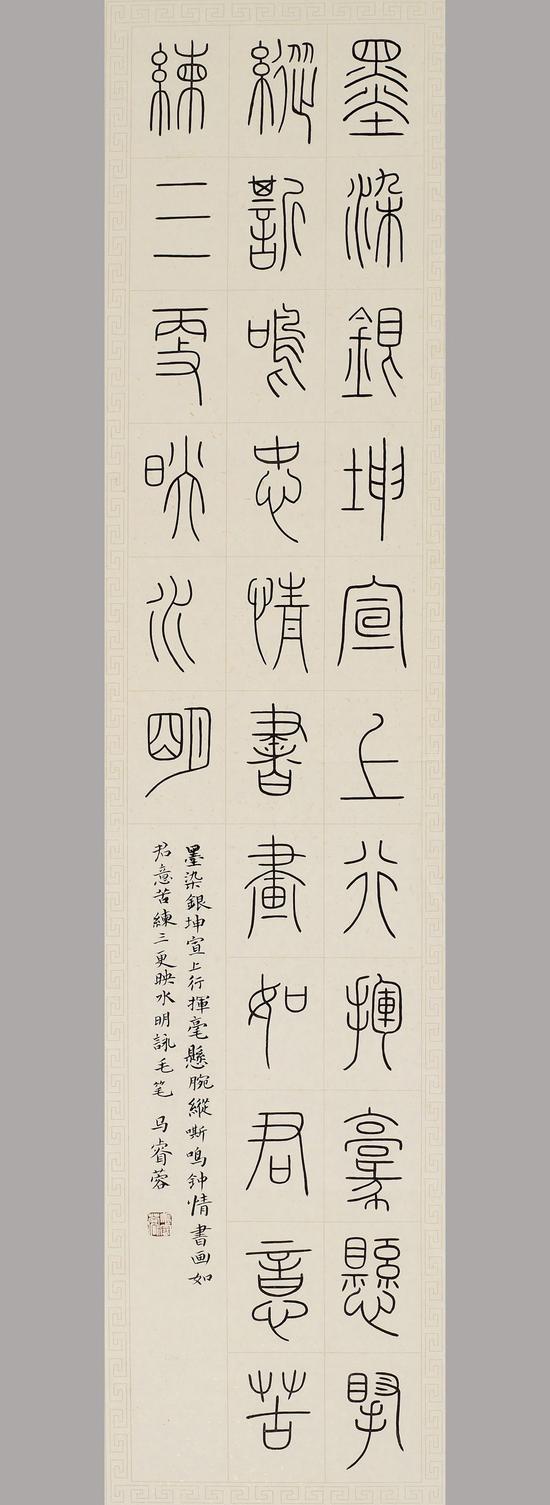 墨染銀坤宣上行揮毫懸腕
縱嘶鳴忠情書畫如君意苦
練三更映水明
墨染銀坤宣上行揮毫懸腕縱嘶鳴鈡情書画如
君意苦練三更映水明詠毛笔 马睿蓉